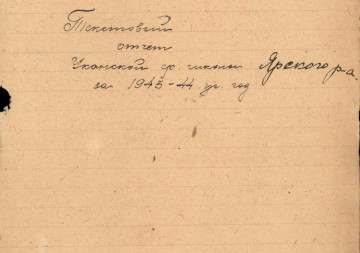 Текстовый
отчет
Уканской ср. школы Ярского р-а.
за 1943-44 уч. год